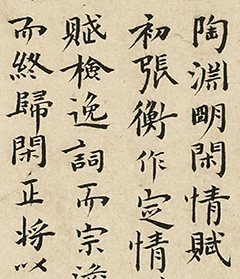 陶淵明閑情賦
初張衡作定情
賦檢逸詞而宗澹
而終歸閑正將以